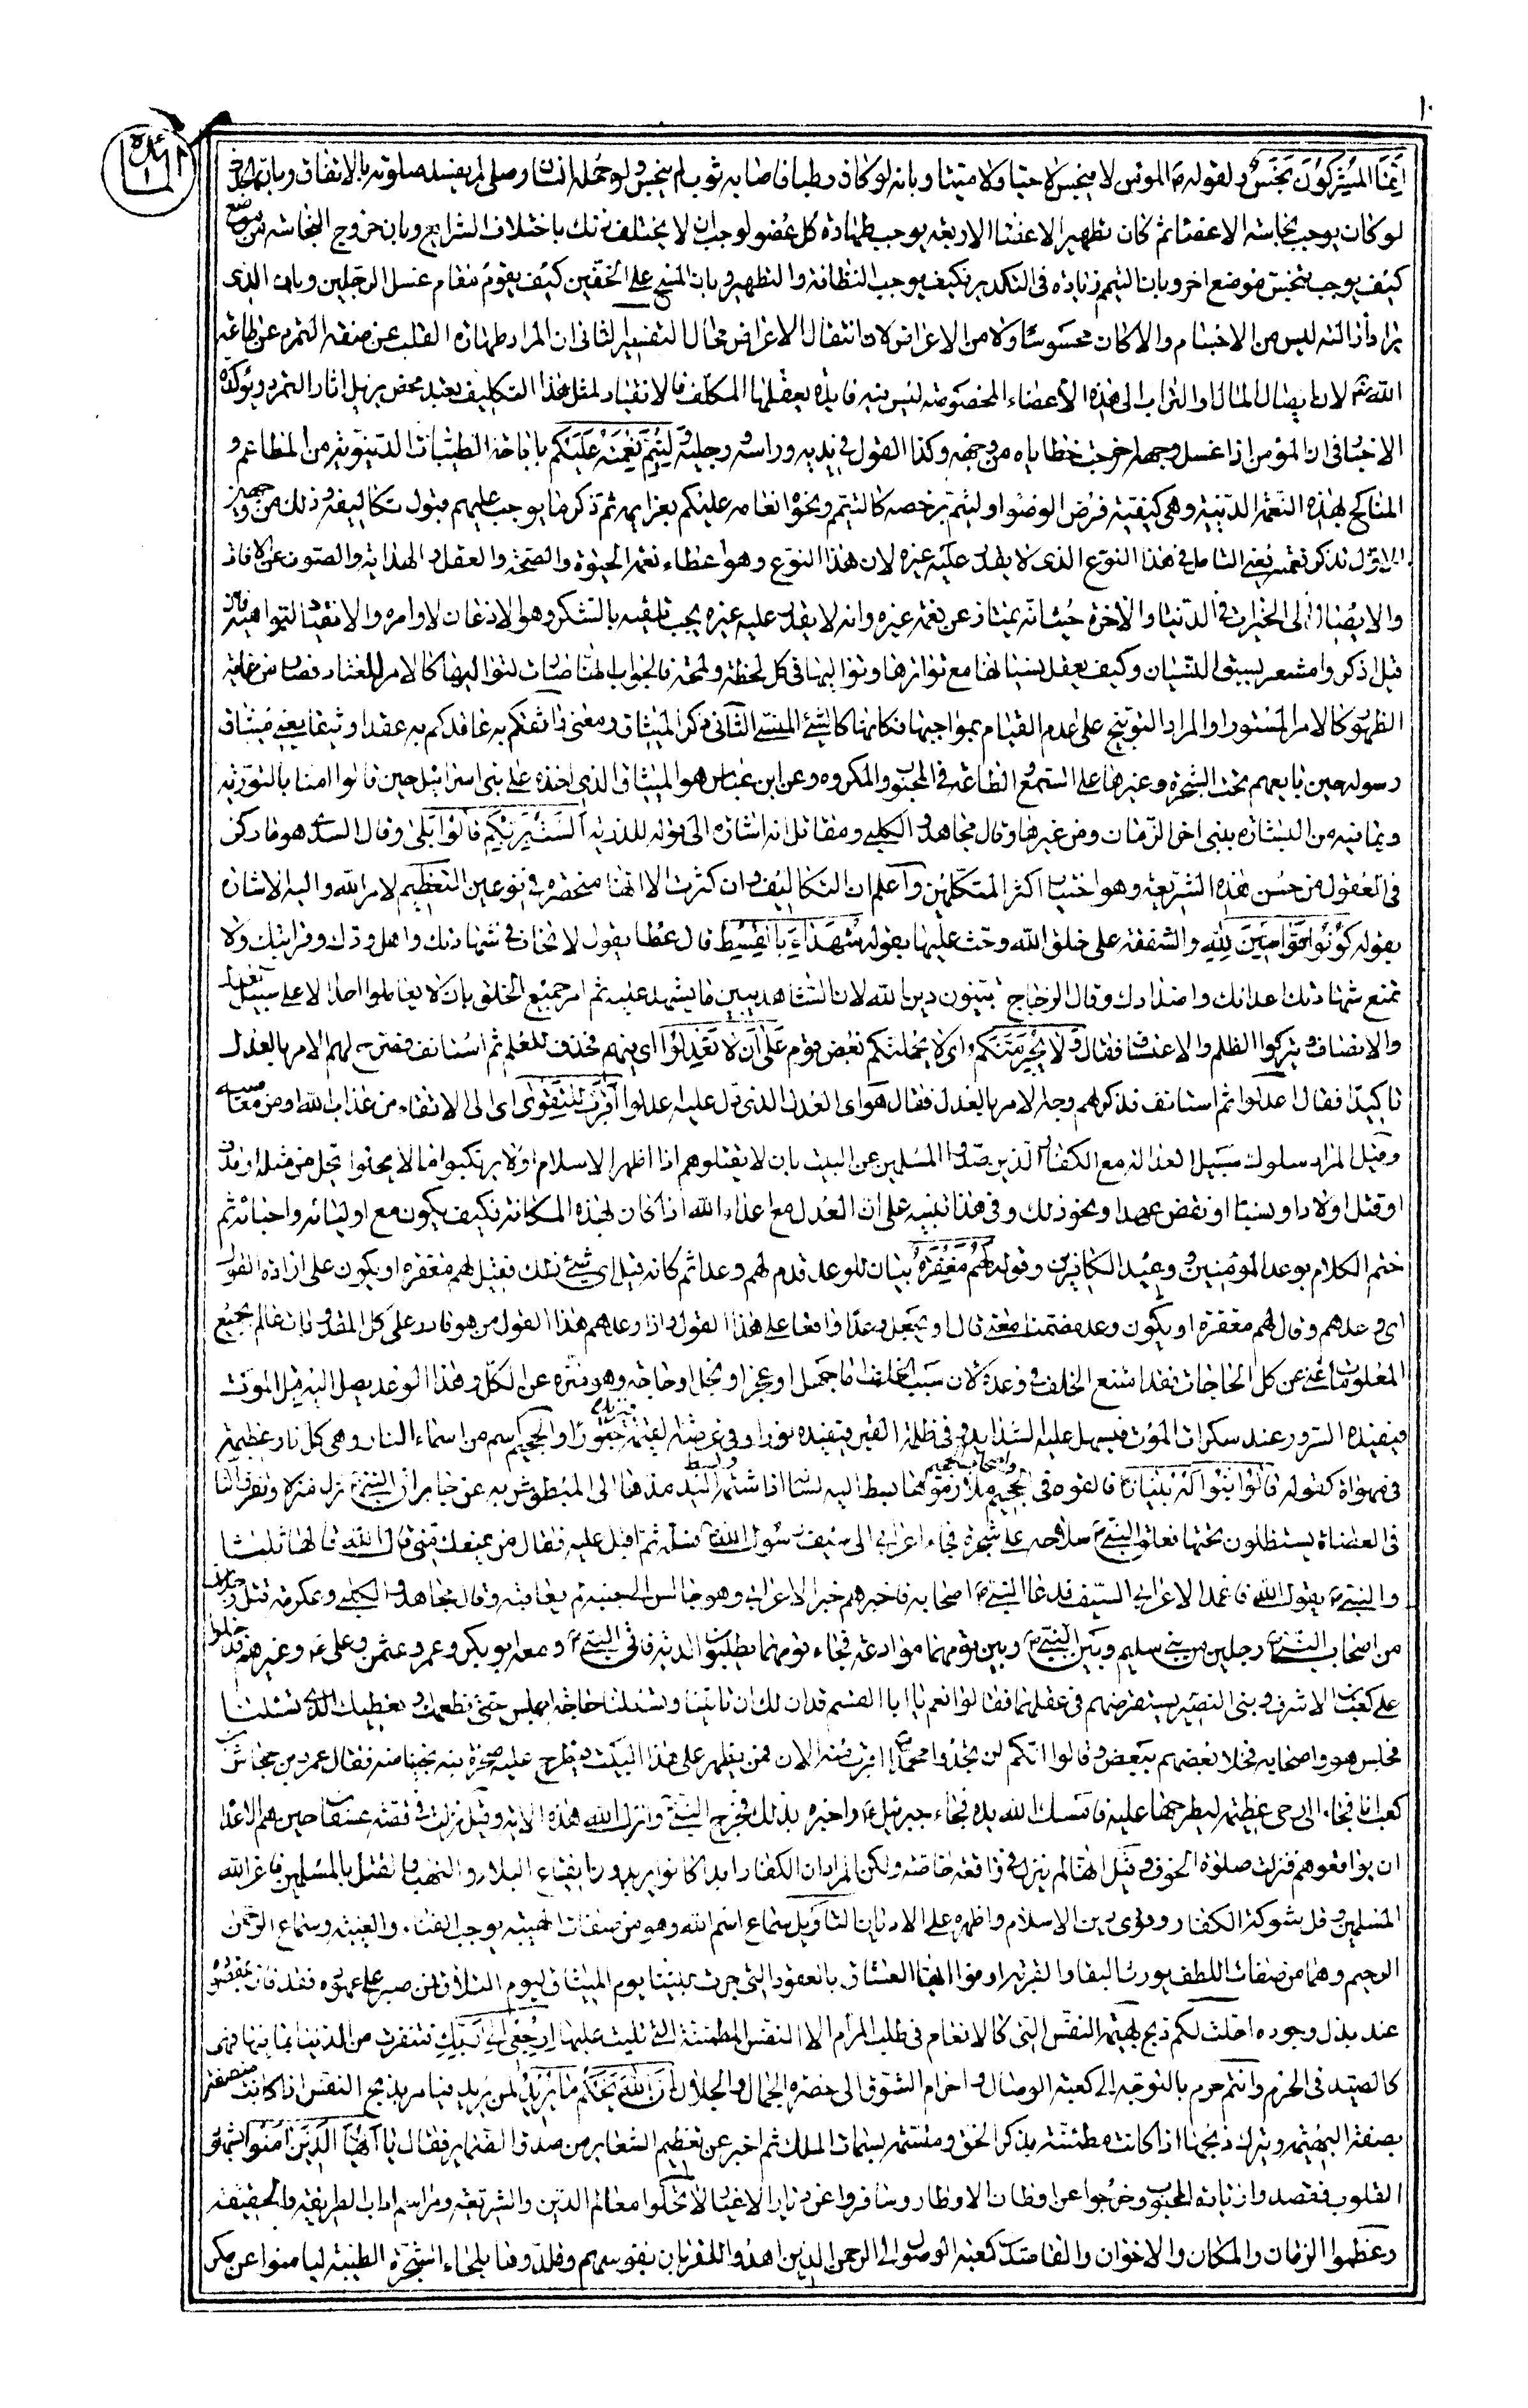 ١٠
المائدة
١
إنما المشركون نجس ولقوله ص المؤمن لا ينجس لا حيا ولا ميتا وبانه لو كان رطبا فاصابه ثوب لم ينجس ولو حمله انسان وصلى لم يفسد صلوته بالاتفاق وبان الحدث
لو كان يوجب نجاسة الاعضاء ثم كان تطهير الاعضاء الاربعة يوجب طهارة كل عضو لوجب ان لا يختلف ذلك باختلاف الشرايع وبان خروج النجاسة من موضع
كيف يوجب تنجس موضع اخر وبان التيمم زيادة فى التكدير فكيف يوجب النظافة والتطهير وبان المسح على الخفين كيف يقوم مقام غسل الرجلين وبان الذى
يراد ازالته ليس من الاجسام والا كان محسوسا ولا من الاعراض لان انتقال الاعراض محال التفسير الثانى ان المراد طهارة القلب عن صفة التمرد عن طاعة
الله تعالى لان ايصال الماء او التراب الى هذه الاعضاء المخصوصة ليس فيه فايدة يعقلها المكلف فالانقياد لمثل هذا التكليف تعبد محض يزيل اثار التمرد ويؤكده
الاخبار فى ان المؤمن اذا غسل وجهه خرجت خطاياه من وجهه وكذا القول فى يديه وراسه ورجليه ليتم نعمته عليكم باباحة الطيبات الدنيوية من المطاعم و
المناكح بهذه النعمة الدينية وهى كيفية فرض الوضوء او ليتم برخصه كالتيمم ونحوه انعامه عليكم بعزايمه ثم ذكر ما يوجب عليهم قبول تكاليفه وذلك من وجهين
الاول تذكر نعمه يعنى التامل فى هذا النوع الذى لا يقدر عليه غيره لان هذا النوع وهو اعطاء نعم الحيوة والصحة والعقل والهداية والصون عن الافات
والايصال الى الخيرات فى الدنيا والاخرة حيث انه يمتاز عن نعمة غيره وانه لا يقدر عليه غيره يجب تلقيه بالشكر وهو الاذعان لاوامره والانقياد لنواهيه فان
قيل اذكروا مشعر بسبق النسيان وكيف يعقل نسيانها مع تواترها وتواليها فى كل لحظة ولمحة فالجواب انها صارت لتواليها كالامر المعتاد فصار من غاية
الظهور كالامر المستور او المراد التوبيخ على عدم القيام بمواجبها فكانها كالشئ المنسى الثانى ذكر الميثاق ومعنى واثقكم به عاقدكم به عقدا وثيقا يعنى ميثاق
رسوله حين بايعهم تحت الشجرة وغيرها على السمع والطاعة فى المحبوب والمكروه وعن ابن عباس هو الميثاق الذى اخذه على بنى اسرائيل حين قالوا امنا بالتورية
وبما فيه من البشارة بنبى اخر الزمان ومن غيرها وقال مجاهد والكلبى ومقاتل انه اشارة الى قوله للذرية الست بربكم قالوا بلى وقال السدى هو ما ركز
فى العقول من حسن هذه الشريعة وهو اختيار اكثر المتكلمين واعلم ان التكاليف وان كثرت الا انها منحصرة فى نوعين التعظيم لامر الله واليه الاشارة
بقوله كونوا قوامين لله والشفقة على خلق الله وحث عليها بقوله شهداء بالقسط قال عطا يقول لا تحاف فى شهادتك واهل ودك وقرابتك ولا
تمنع شهادتك اعدائك واضدادك وقال الزجاج بينون دين الله لان الشاهد يبين ما يشهد عليه ثم امر جميع الخلق بان لا يعاملوا احدا الا على سبيل العدل
والانصاف ويتركوا الظلم والاعتساف فقال ولا يجرمنكم اى لا يحملنكم بغض قوم على ان لا تعدلوا اى فيهم فحذف للعلم ثم استانف فصرح لهم الامر بالعدل
تاكيدا فقال اعدلوا ثم استانف فذكر لهم وجه الامر بالعدل فقال هو اى العدل الذى دل عليه اعدلوا اقرب للتقوى اى الى الاتقاء من عذاب الله او من معاصيه
وقيل المراد سلوك سبيل العدالة مع الكفار الذين صدوا المسلمين عن البيت بان لا يقتلوهم اذا اظهروا الاسلام او لا يرتكبوا ما لا يحل من مثلة او قذف
او قتل اولاد او نساء او نقض عهد او نحو ذلك وفى هذا تنبيه على ان العدل مع اعداء الله اذا كان بهذه المكانة فكيف يكون مع اوليائه واحبائه ثم
ختم الكلام بوعد المؤمنين ووعيد الكافرين وقوله لهم مغفرة بيان للوعد قدم لهم وعدا ثم كانه قيل اى شئ ذلك فقيل لهم مغفرة او يكون على ارادة القول
اى وعدهم وقال لهم مغفرة او يكون وعد مضمنا معنى قال او يجعل وعد واقعا على هذا القول واذا وعدهم هذا القول من هو قادر على كل المقدورات عالم بجميع
المعلومات غنى عن كل الحاجات فقد امتنع الخلف فى وعده لان سبب الخلف اما جهل او عجز او بخل او حاجة وهو منزه عن الكل وهذا الوعد يصل اليه قبل الموت
فيفيده السرور عند سكرات الموت فيسهل عليه الشدايد وفى ظلمة القبر فيفيده نورا وفى عرصة القيمة فيزيده حبورا والجحيم اسم من اسماء النار وهى كل نار عظيمة
فى مهواة كقوله قالوا ابنوا له بنيانا فالقوه فى الجحيم واصحاب الجحيم ملازموها بسط اليه لسانه اذا شتمه وبسط اليد مدها الى المبطوش به عن جابر ان النبى ص نزل منزلا وتفرق الناس
فى العضاة يستظلون تحتها فعلق النبى ص سلاحه على شجرة فجاء اعرابى الى سيف رسول الله ص فسله ثم اقبل عليه فقال من يمنعك منى قال الله قالها ثلاثا
والنبى ص يقول الله فاغمد الاعرابى السيف فدعا النبى ص اصحابه فاخبرهم خبر الاعرابى وهو جالس الى جنبه لم يعاقبه وقال مجاهد والكلبى وعكرمة قتل رجلان
من اصحاب النبى ص رجلين من بنى سليم وبين النبى ص وبين قومهما موادعة فجاء قومهما يطلبون الدية فاتى النبى ص ومعه ابو بكر وعمر وعثمن وعلى ع وغيرهم فدخلوا
على كعب بن الاشرف وبنى النضير يستقرضهم فى عقلهما فقالوا نعم يا ابا القسم قد ان لك ان تاتينا وتسئلنا حاجة اجلس حتى نطعمك ونعطيك الذى تسئلنا
فجلس هو واصحابه فخلا بعضهم ببعض وقالوا انكم لن تجدوا محمدا اقرب منه الان فمن يظهر على هذا البيت فيطرح عليه صخرة فيريحنا منه فقال عمر بن جحاش بن
كعب انا فجاء الى رحى عظيمة ليطرحها عليه فامسك الله يده فجاء جبرئيل ع واخبره بذلك فخرج النبى ص وانزل الله هذه الاية وقيل نزلت فى قصة عسفان حين هم الاعداء
ان يواقعوهم فنزلت صلوة الخوف وقيل انها لم ينزل فى واقعة خاصة ولكن المراد ان الكفار ابدا كانوا يريدون ايقاع البلاء والنهب والقتل بالمسلمين فاعز الله
المسلمين وفل شوكة الكفار وقوى دين الاسلام واظهره على الاديان التاويل سماع اسم الله وهو من صفات الهيبة يوجب الفناء والغيبة وسماع الرحمن
الرحيم وهما من صفات اللطف يورث البقاء والقربة اوفوا ايها العشاق بالعقود التى جرت بيننا يوم الميثاق ليوم التلاق فمن صبر على عهوده فقد فاز بمقصوده
عند بذل وجوده احلت لكم ذبح بهيمة النفس التى كالانعام فى طلب المرام الا النفس المطمئنة التى تليت عليها ارجعى الى ربك فتنفرت من الدنيا بما فيها فهى
كالصيد فى الحرم وانتم حرم بالتوجه الى كعبة الوصال واحرام الشوق الى حضرة الجمال والجلال ان الله يحكم ما يريد لمن يريد فيامر بذبح النفس اذا كانت متصفة
بصفة البهيمة ويترك ذبحها اذا كانت مطمئنة بذكر الحق ومتسمة بسمات الملك ثم اخبر عن تعظيم الشعاير من صدق الضماير فقال يا ايها الذين امنوا بشهود
القلوب فقصدوا زيارة المحبوب وخرجوا عن اوطان الاوطار وسافروا عن ديار الاغيار لا تحلوا معالم الدين والشريعة ومراسم اداب الطريقة والحقيقة
وعظموا الزمان والمكان والاخوان والقاصدين كعبة الوصول الى الرحمن الذين اهدوا للقربان نفوسهم وقلدوها بلحاء الشجرة الطيبة ليامنوا عن مكر